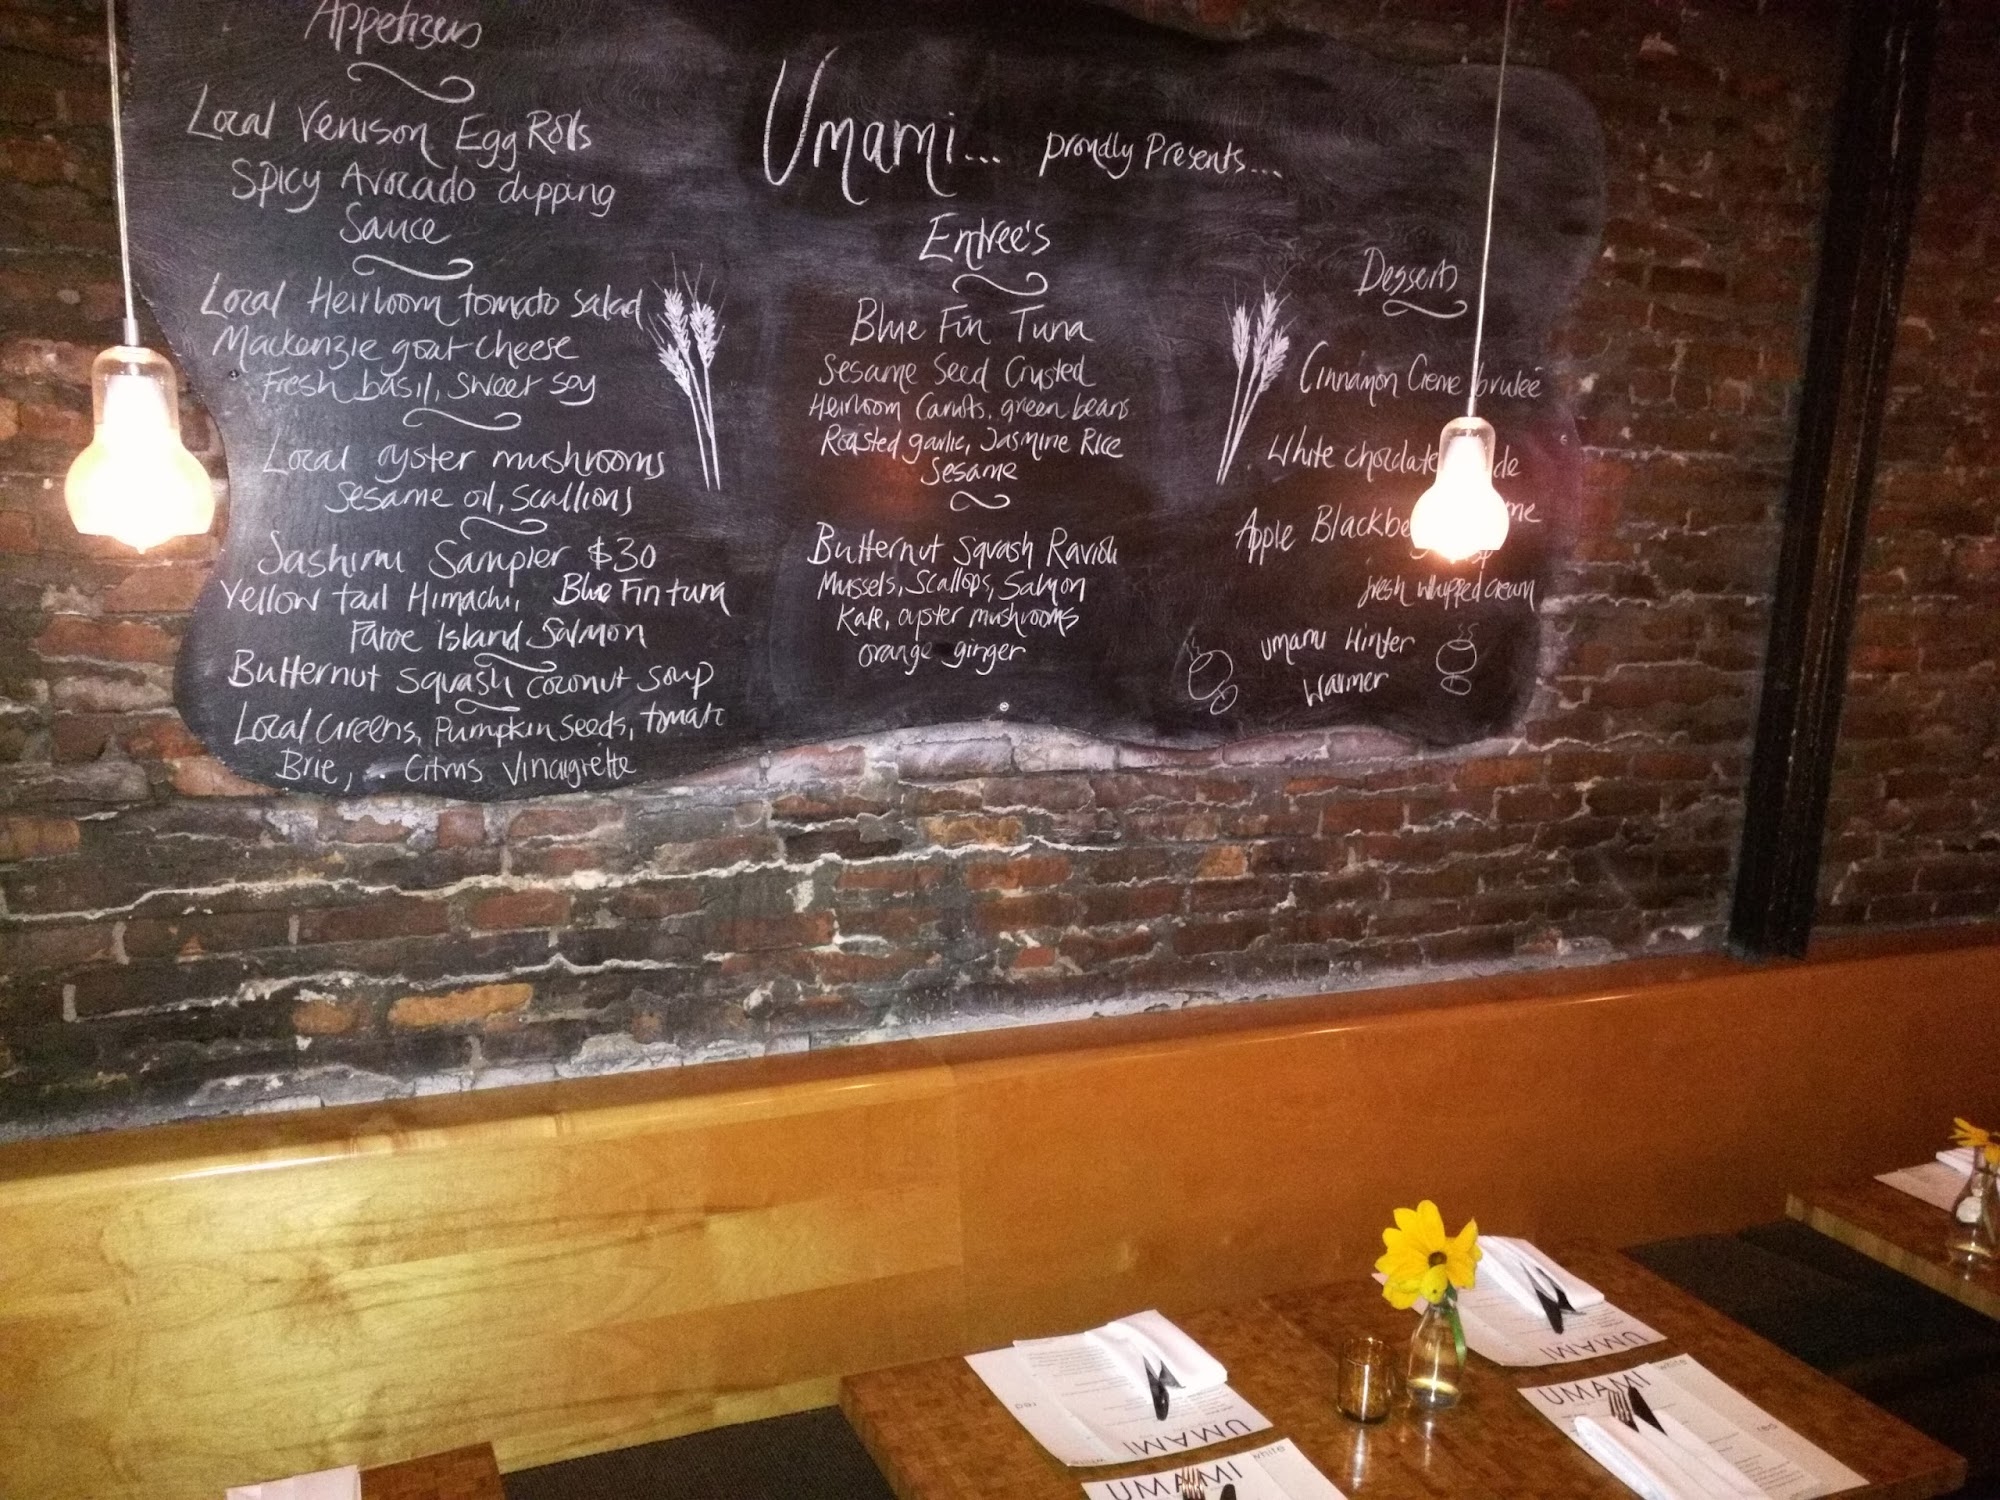 Appetizers
Local Venison Egg Rolls
Spicy Avocado dipping
Sauce
Local Heirloom tomato salad
Mackenzie goat cheese
Fresh basil, sweet soy
Local oyster mushrooms
Sesame oil, scallions
Sashimi Sampler $30
Yellow tail Himachi, Blue Fin tuna
Faroe Island Salmon
Butternut Squash coconut soup
Local Greens, Pumpkin seeds, tomato
Brie, Citrus Vinaigrette
Umami... proudly Presents...
Entree's
Blue Fin Tuna
Sesame Seed Crusted
Heirloom Carrots, green beans
Roasted garlic, Jasmine Rice
Sesame
Butternut Squash Ravioli
Mussels, Scallops, Salmon
Kale, oyster mushrooms
orange ginger
Desserts
Cinnamon Creme brulee
White chocolate
Apple
fresh whipped cream
Umami Winter
Warmer
UMAMI
UMAMI
white
UMAMI
red
white
UMAMI
red